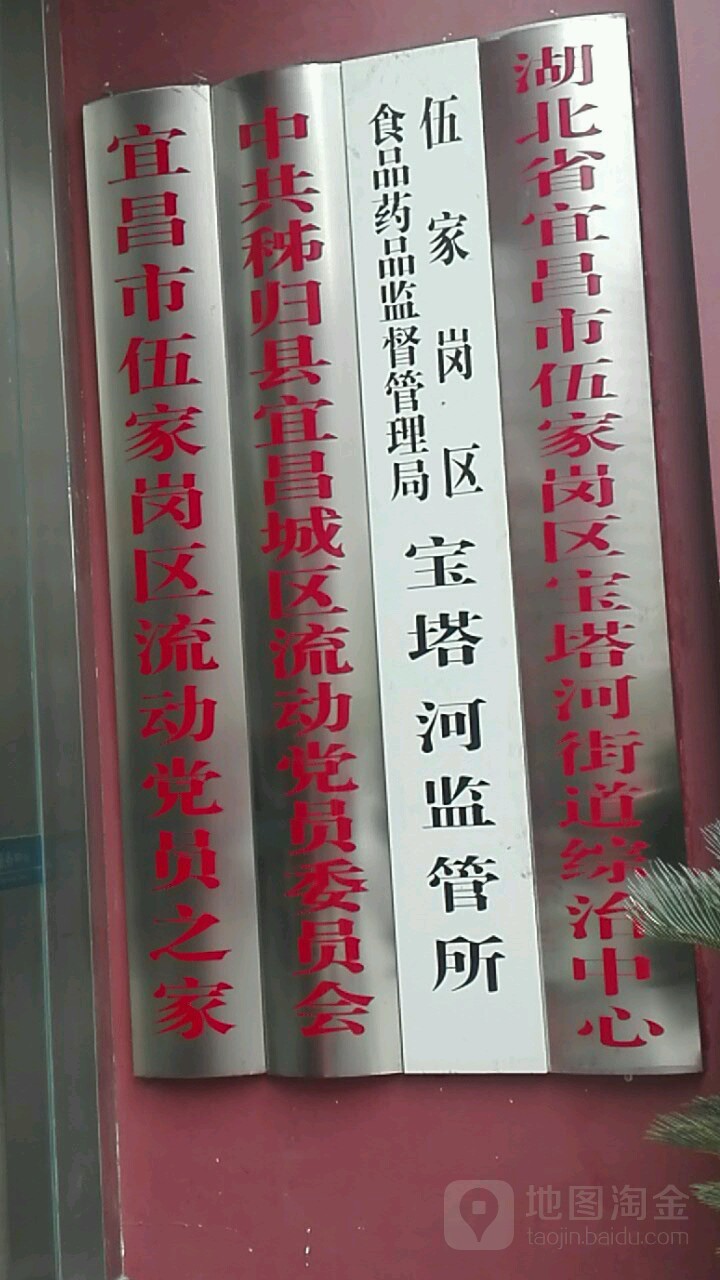 宜昌市伍家岗区流动党员之家
中共秭归县宜昌城区流动党员委员会
伍家岗区
食品药品监督管理局
宝塔河监管所
湖北省宜昌市伍家岗区宝塔河街道综治中心
地图淘金
taojin.baidu.com